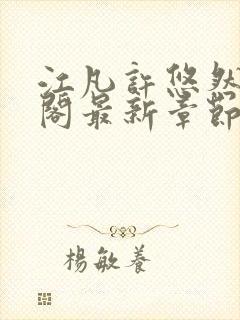 江凡許悠然
閣最新章節
楊敏養